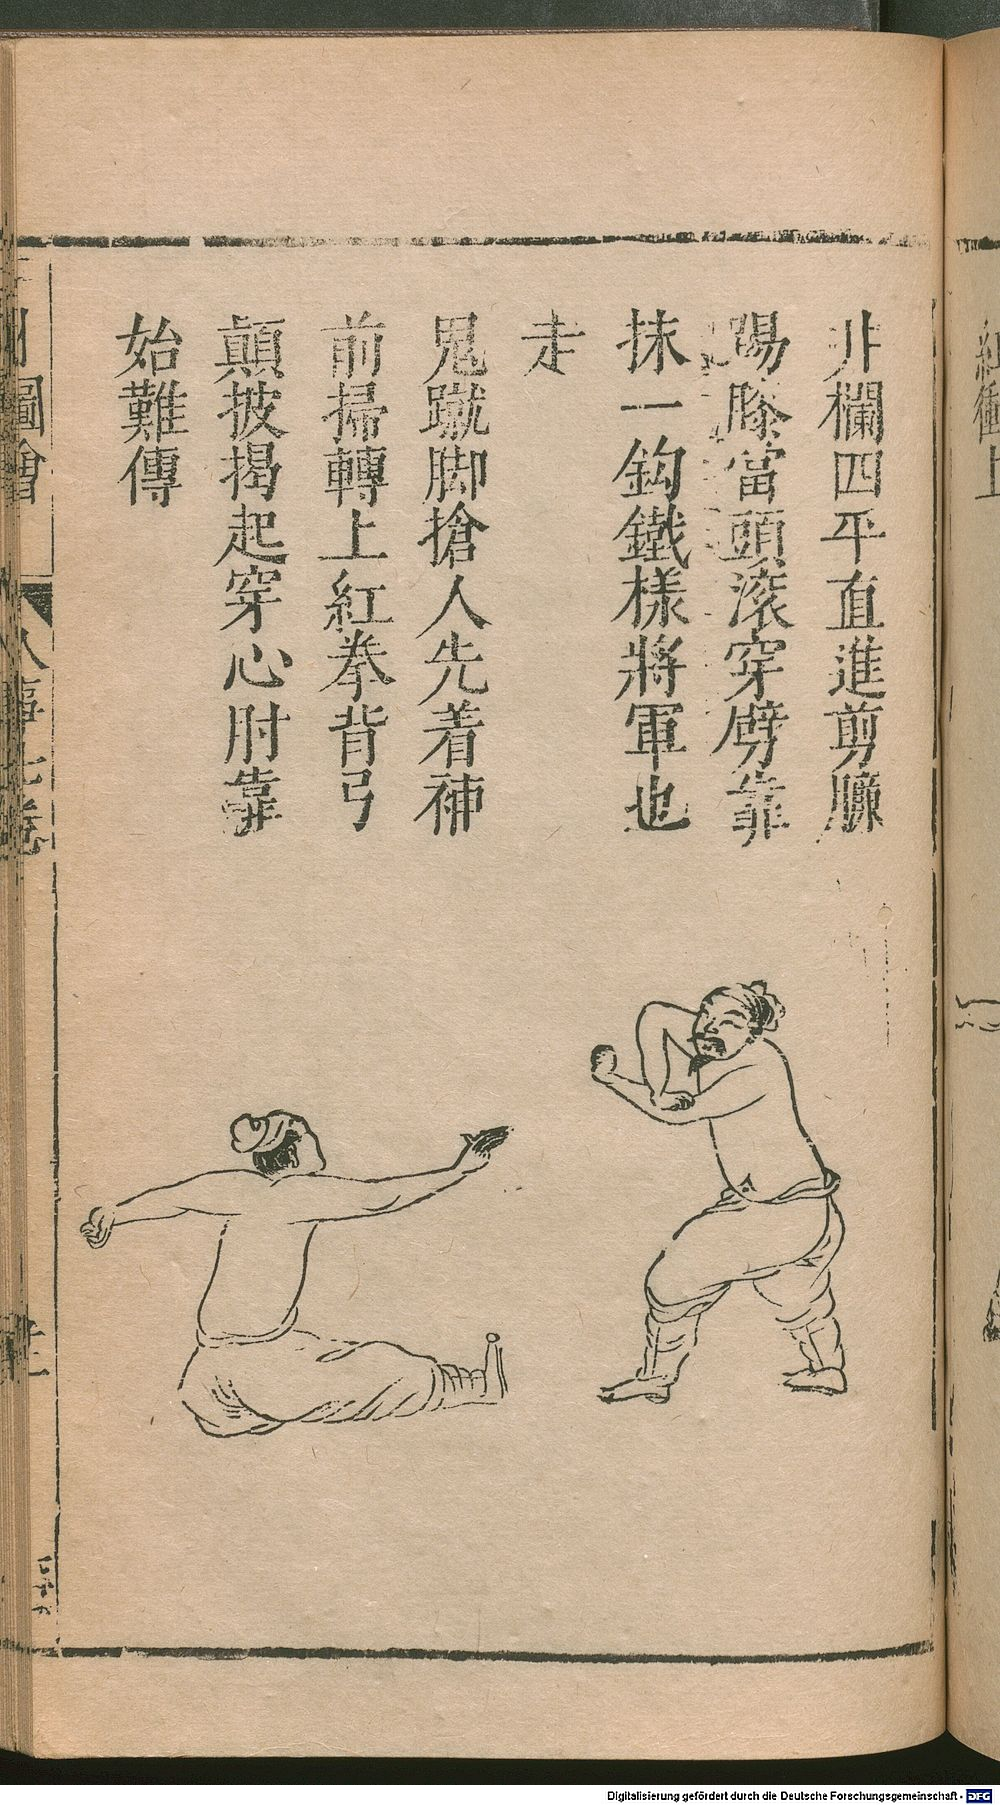 井欄四平直進剪臁
陽膝當頭滚穿劈靠
抹一鈎鐵樣將軍也
走
鬼蹴脚搶人先着補
前掃轉上紅拳背弓
顛披揭起穿心肘靠
始難傳
圖會
人事七卷
Digitalisierung gefördert durch die Deutsche Forschungsgemeinschaft - DFG